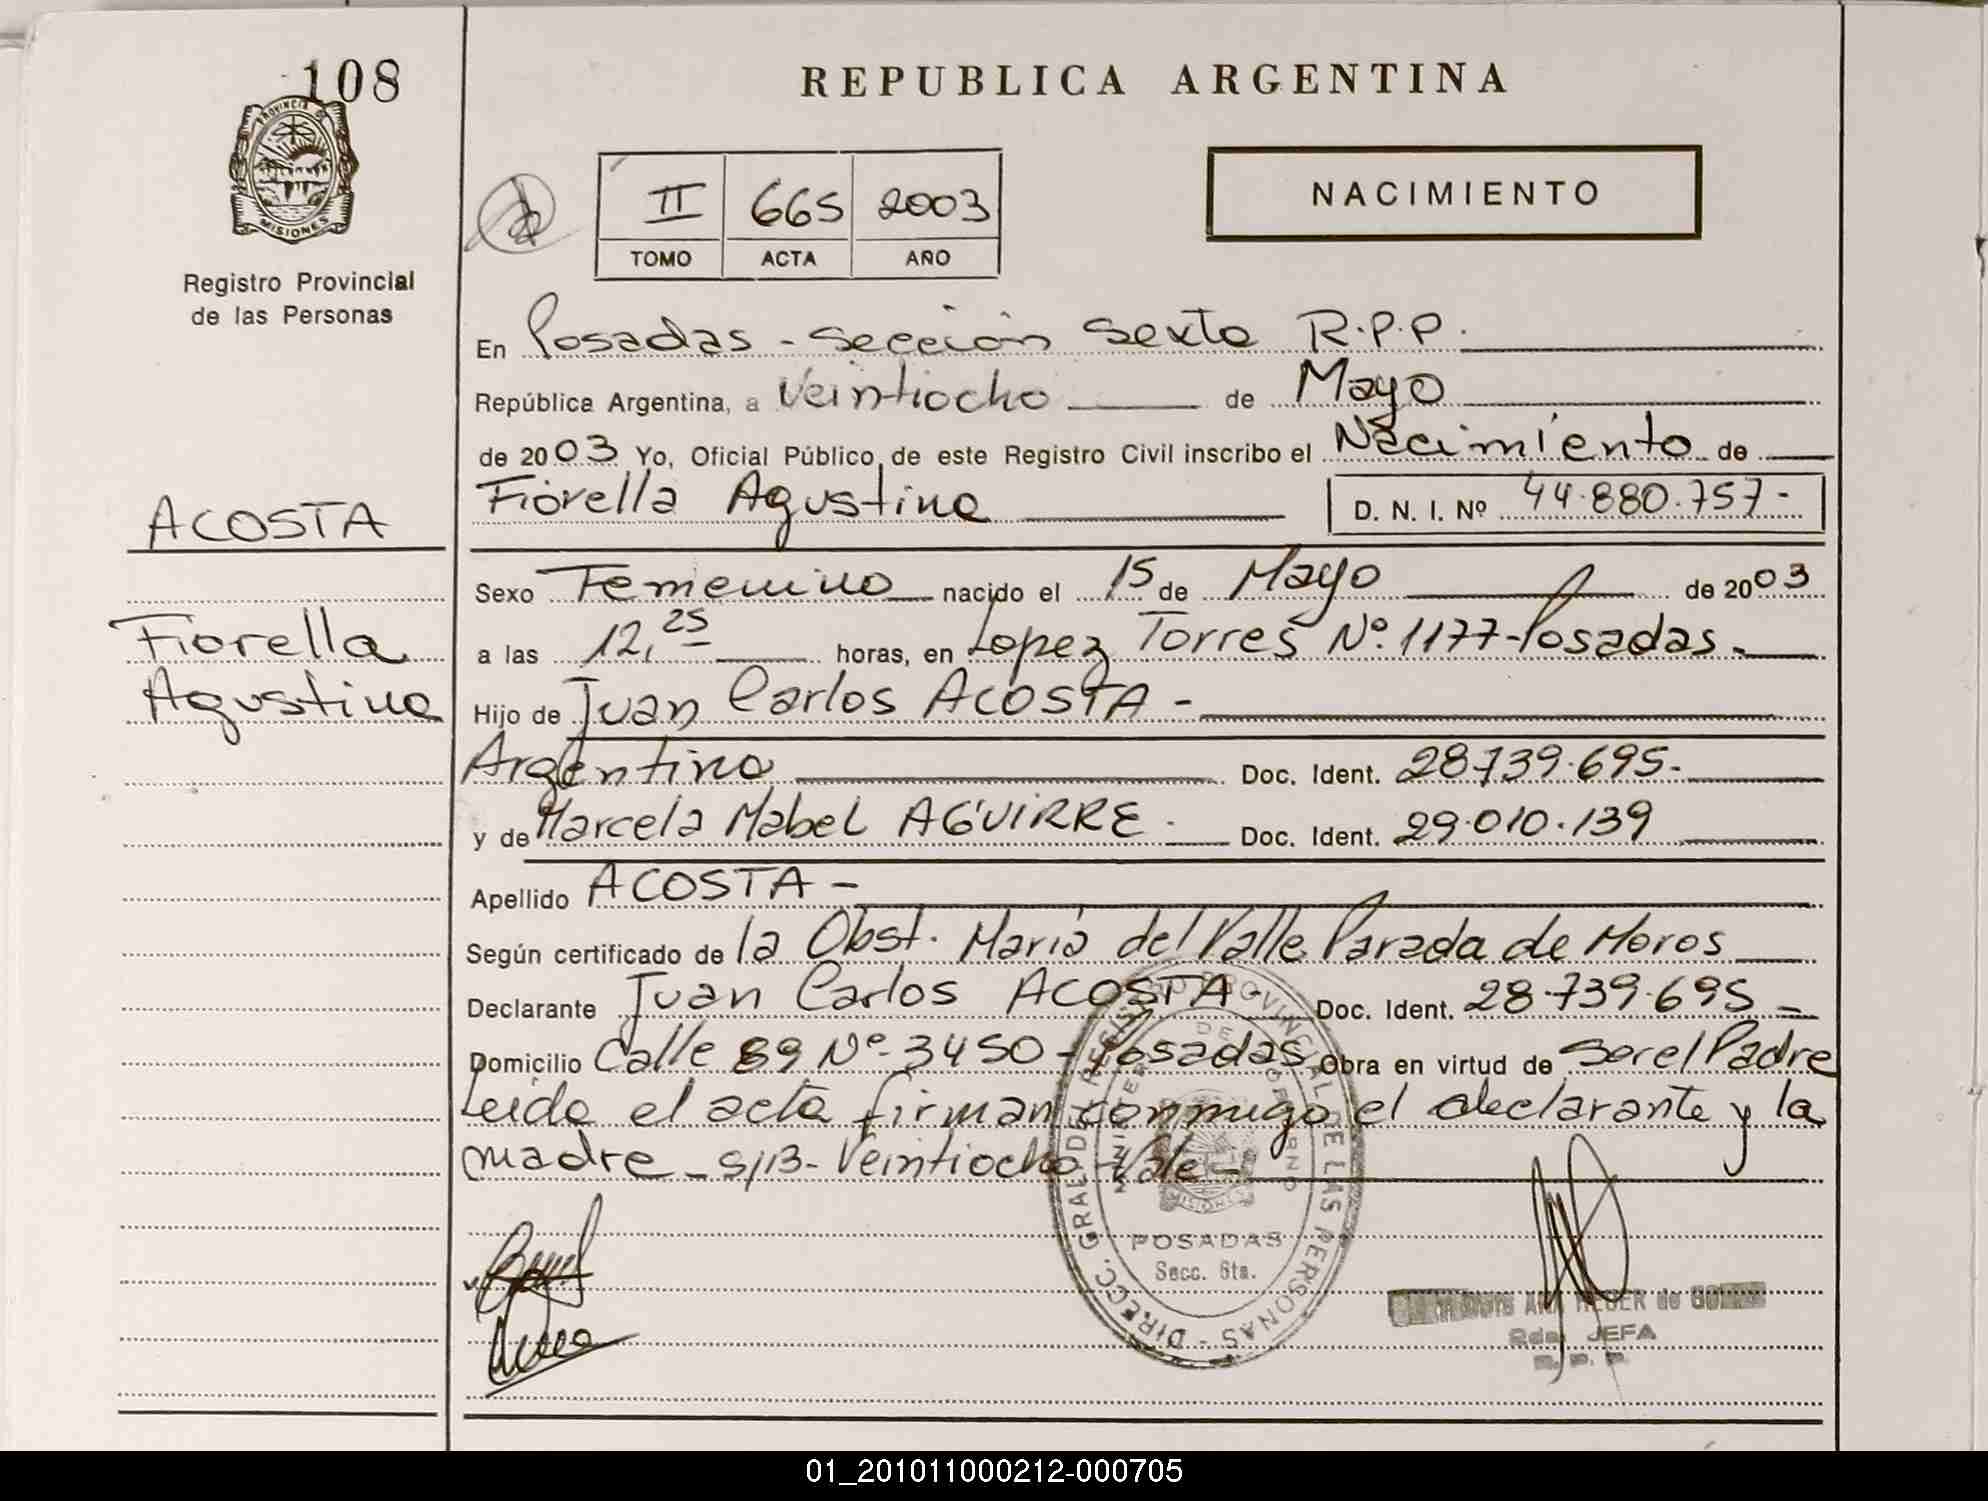 108
PROVINCIA DE
MISIONES
Registro Provincial
de las Personas
ACOSTA
Fiorella
Agustina
REPUBLICA ARGENTINA
II 665 2003
TOMO ACTA AÑO
NACIMIENTO
En Posadas - Sección Sexta R.P.P.
República Argentina, a Veintiocho de Mayo
de 2003 Yo, Oficial Público de este Registro Civil inscribo el Nacimiento de
Fiorella Agustina D. N. I. Nº 44.880.757-
Sexo Femenino nacido el 15 de Mayo de 2003
a las 12,25 horas, en Lopez Torres Nº 1177-Posadas-
Hijo de Juan Carlos ACOSTA -
Argentino Doc. Ident. 28.739.695-
y de Marcela Mabel AGUIRRE. Doc. Ident. 29.010.139
Apellido ACOSTA -
Según certificado de la Obst. Maria del Valle Parada de Moros
Declarante Juan Carlos ACOSTA - Doc. Ident. 28.739.695 -
Domicilio Calle 89 Nº 3450 - Posadas Obra en virtud de ser el Padre
Leida el acta firman conmigo el declarante y la
madre - S/B - Veintiocho - Vale -
DIRECC. GRAL. DEL REGISTRO PROVINCIAL DE LAS PERSONAS -
MINISTERIO DE GOBIERNO
MISIONES
POSADAS
Secc. 6ta.
JEFA
R. P. P.
01_201011000212-000705